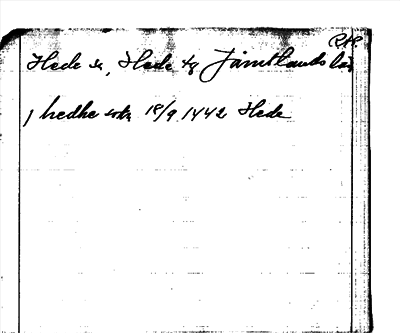 R.H.
Hede sn, Hede tg Jämtlands län
j hedhe sokn 18/9 1442 Hede